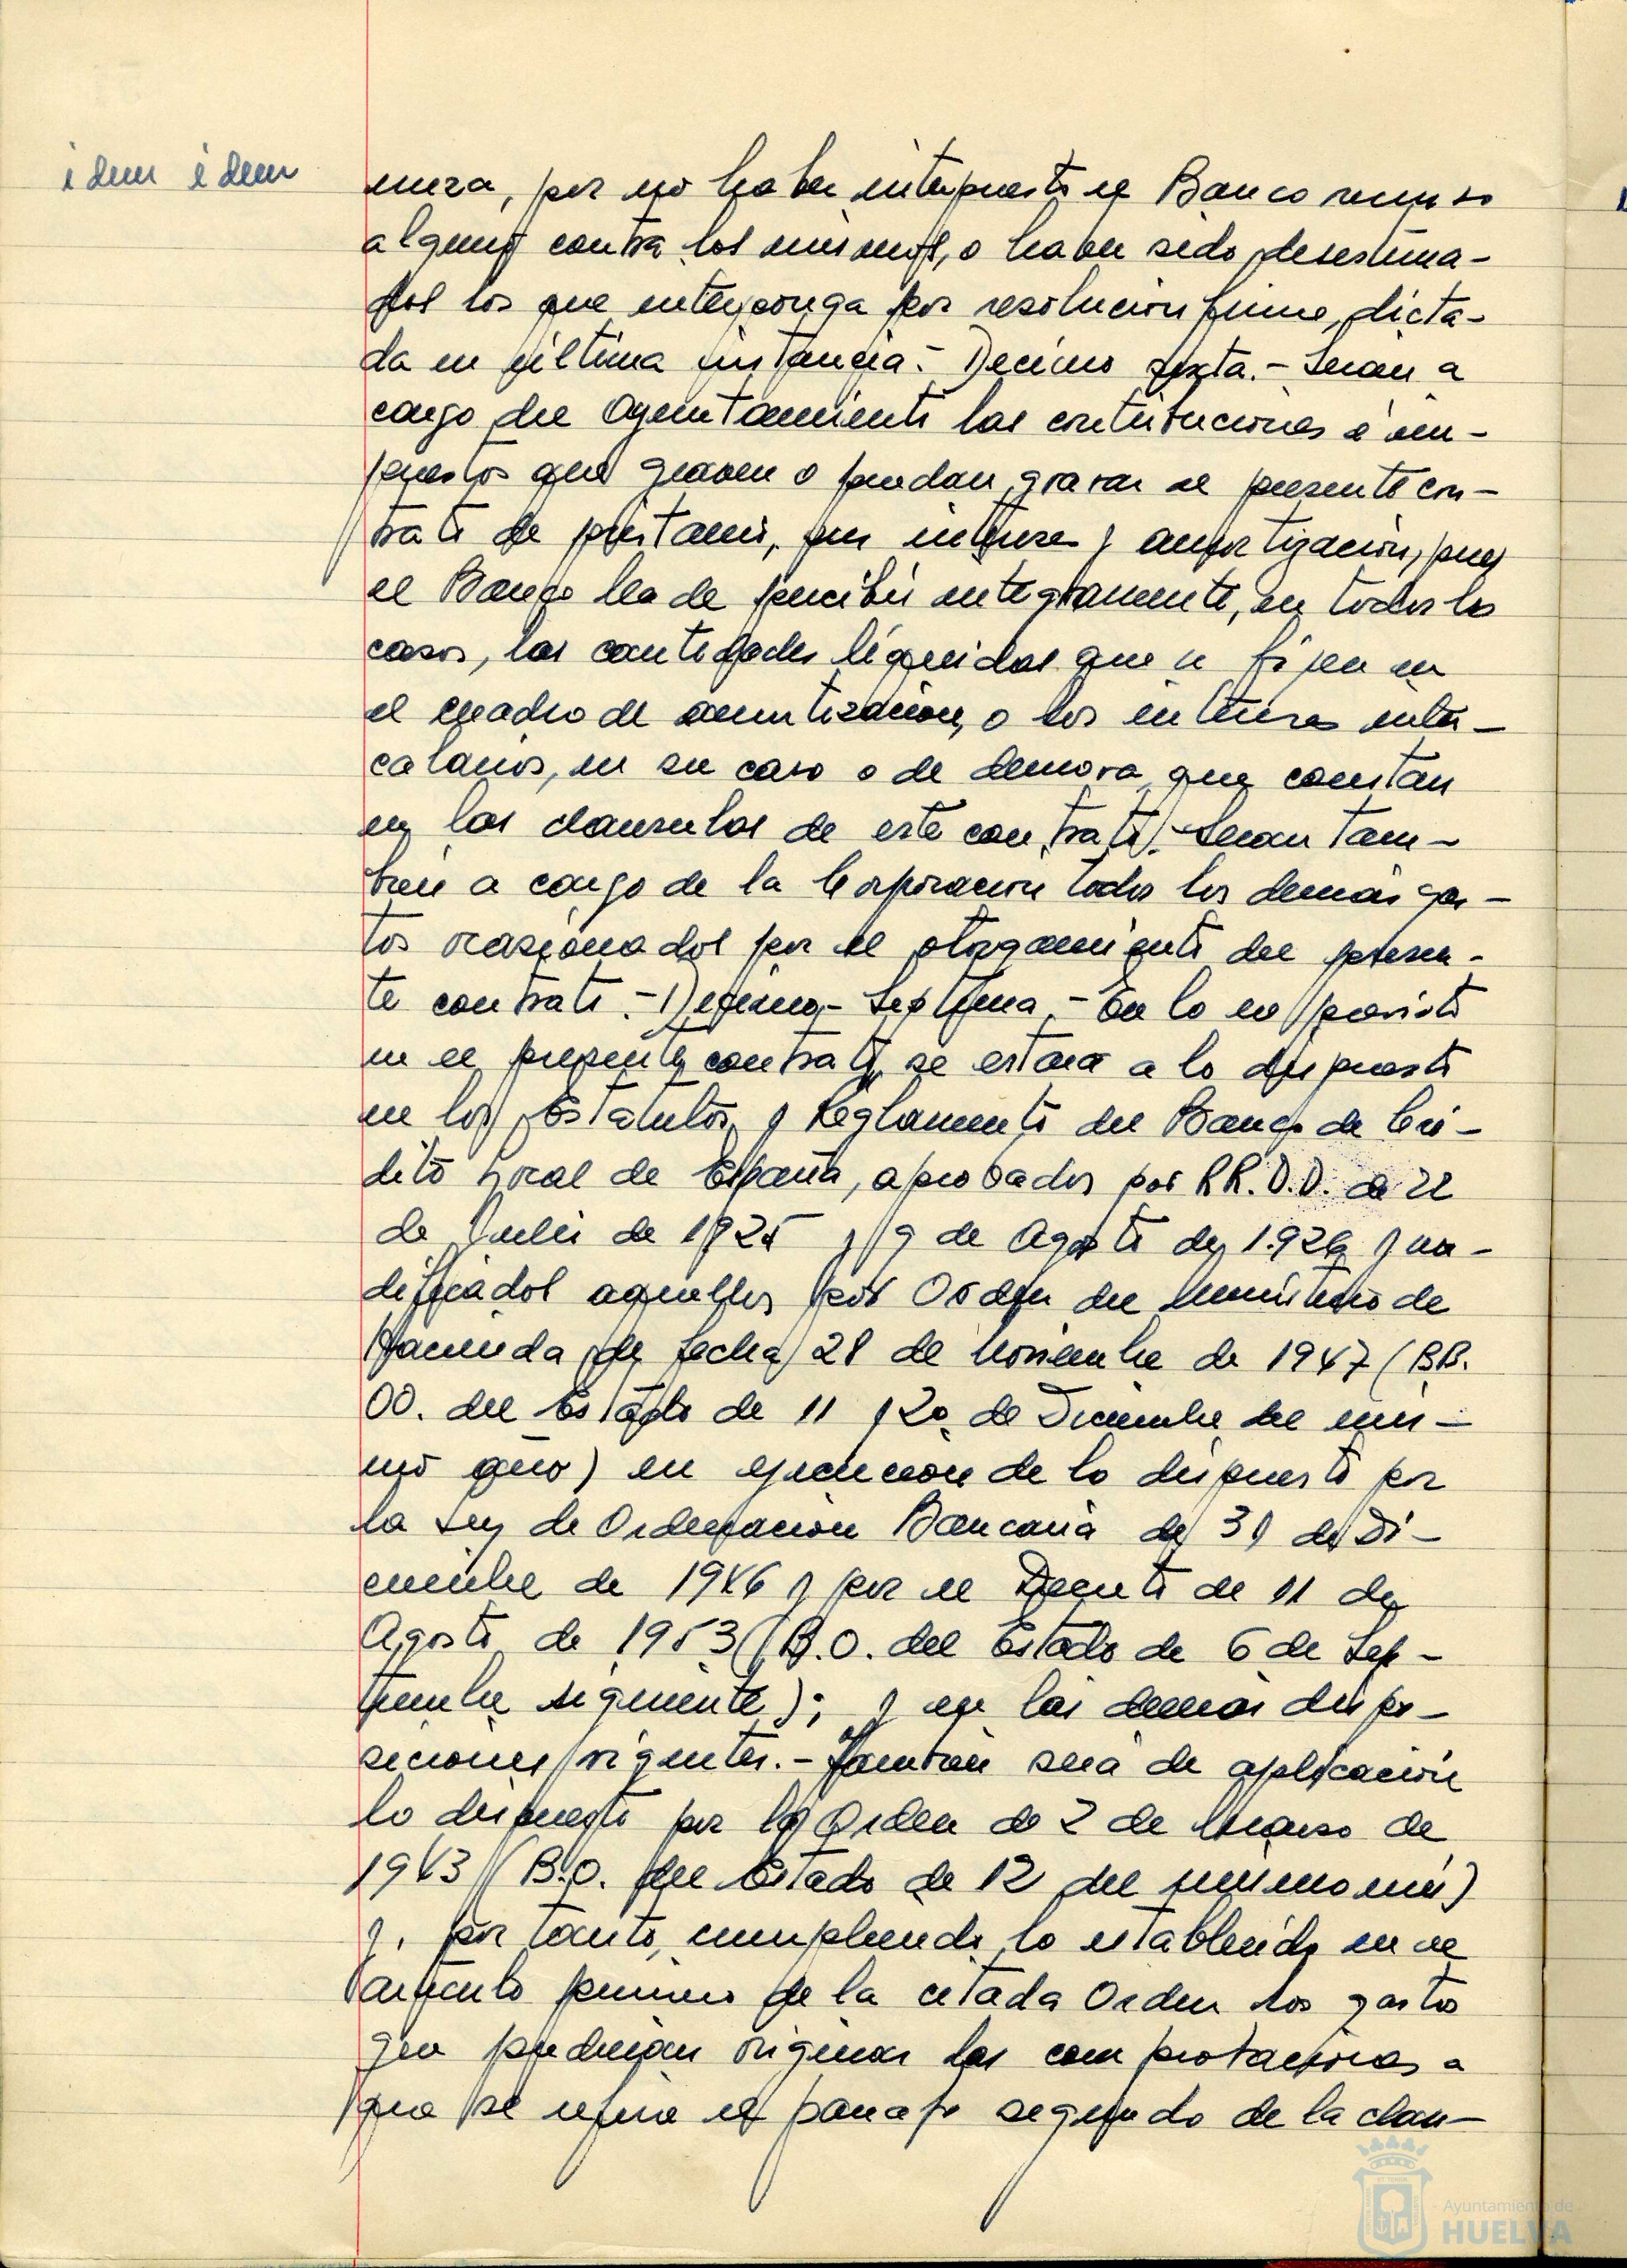 idem idem
mera, por no haber interpuesto el Banco recurso
alguno contra los mismos, o haber sido desestima-
dos los que interponga por resolución firme, dicta-
da en última instancia.- Decimo sexta.- Serán a
cargo del Ayuntamiento las contribuciones e im-
puestos que graven o puedan gravar el presente con-
trato de préstamo, sus intereses y amortización, pues
el Banco ha de percibir integramente, en todos los
casos, las cantidades líquidas que se fijen en
el cuadro de amortización, o los intereses inter-
calarios, en su caso o de demora que constan
en las clausulas de este contrato.- Seran tam-
bien a cargo de la Corporacion todos los demás gas-
tos ocasionados por el otorgamiento del presen-
te contrato.- Decimo- Septima.- En lo no previsto
en el presente contrato, se estará a lo dispuesto
en los Estatutos y Reglamento del Banco de Cré-
dito Local de España, aprobados por RR.D.D. de 22
de Julio de 1925 y 9 de Agosto de 1.926 y mo-
dificados aquellos por Orden del Ministerio de
Hacienda de fecha 28 de Noviembre de 1947 (BB.
OO. del Estado de 11 y 20 de Diciembre del mis-
mo año) en ejecucion de lo dispuesto por
la Ley de Ordenacion Bancaria de 31 de Di-
ciembre de 1946 y por el Decreto de 11 de
Agosto de 1953 (B.O. del Estado de 6 de Sep-
tiembre siguiente); y en las demás dispo-
siciones vigentes.- Tambien será de aplicación
lo dispuesto por la Orden de 2 de Marzo de
1943 (B.O. del Estado de 12 del mismo mes)
y, por tanto, cumpliendo lo establecido en el
articulo primero de la citada Orden los gastos
que pudieran originar las comprobaciones a
que se refiere el parrafo segundo de la clau-
Ayuntamiento de
HUELVA